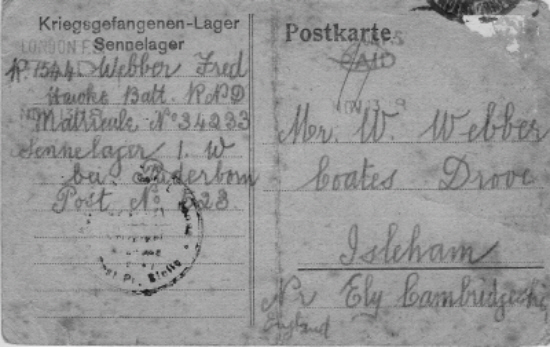 Kriegsgefangenen-Lager
Sennelager
LONDON F.S.
PAID
Nr. 1544. Webber Fred
Hawke Batt. R.N.D
Matricule No 34233
Sennelager 1. W
bei Paderborn
Post No 523
Postkarte
PAID
Mr. W. Webber
Coates Drove
Isleham
Nr Ely Cambridgeshire
England